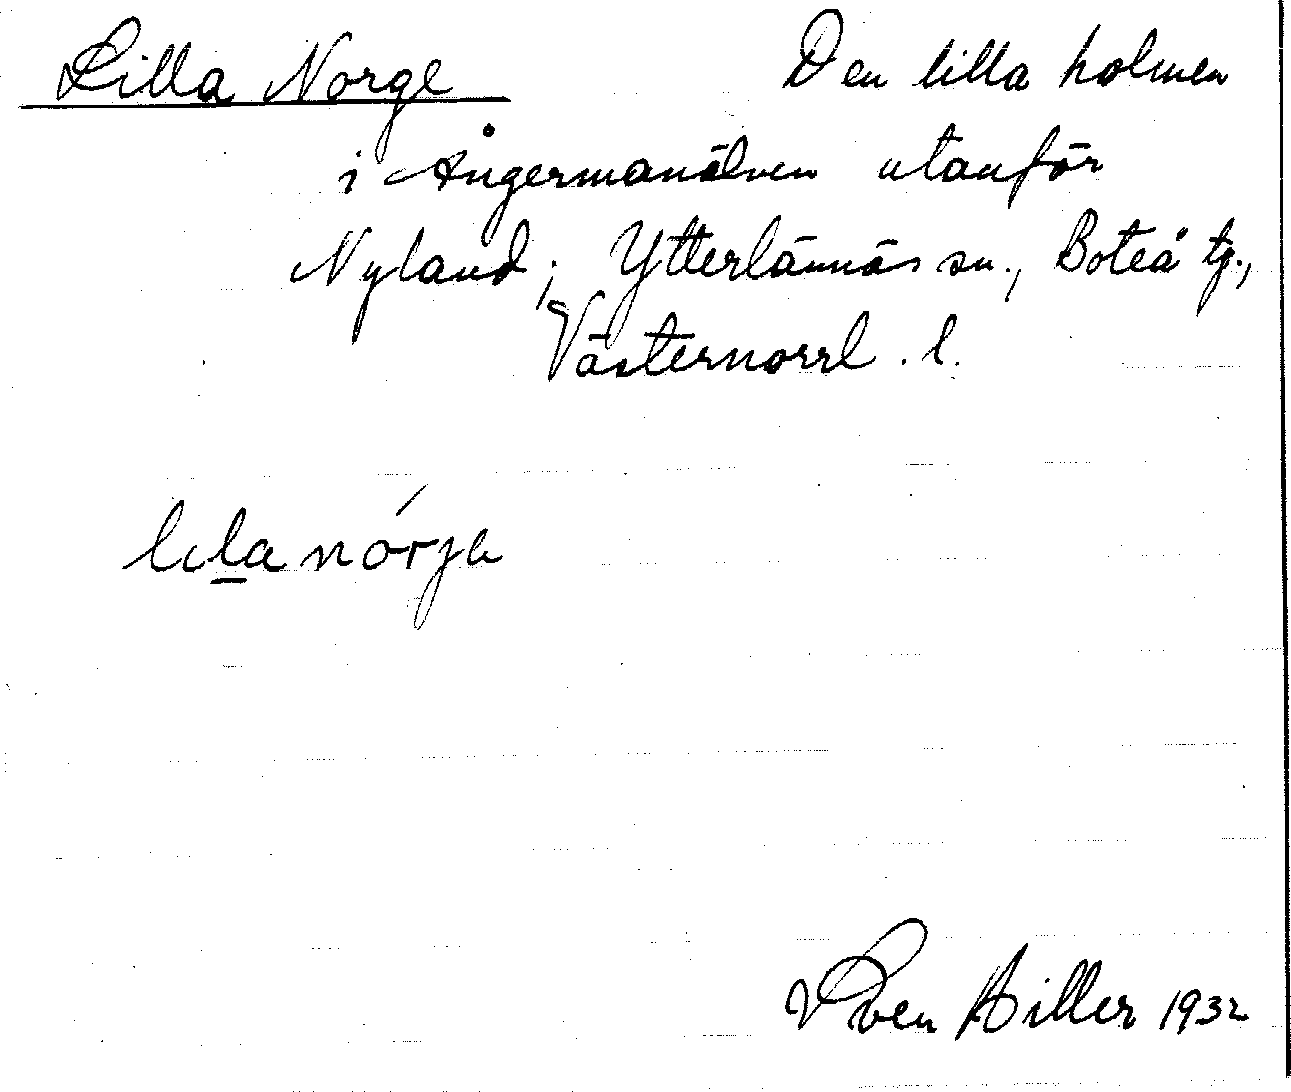 Lilla Norge Den lilla holmen
i Ångermanälven utanför
Nyland; Ytterlännäs sn., Boteå tg.,
Västernorrl. l.
lila nórja
Sven Hiller 1932